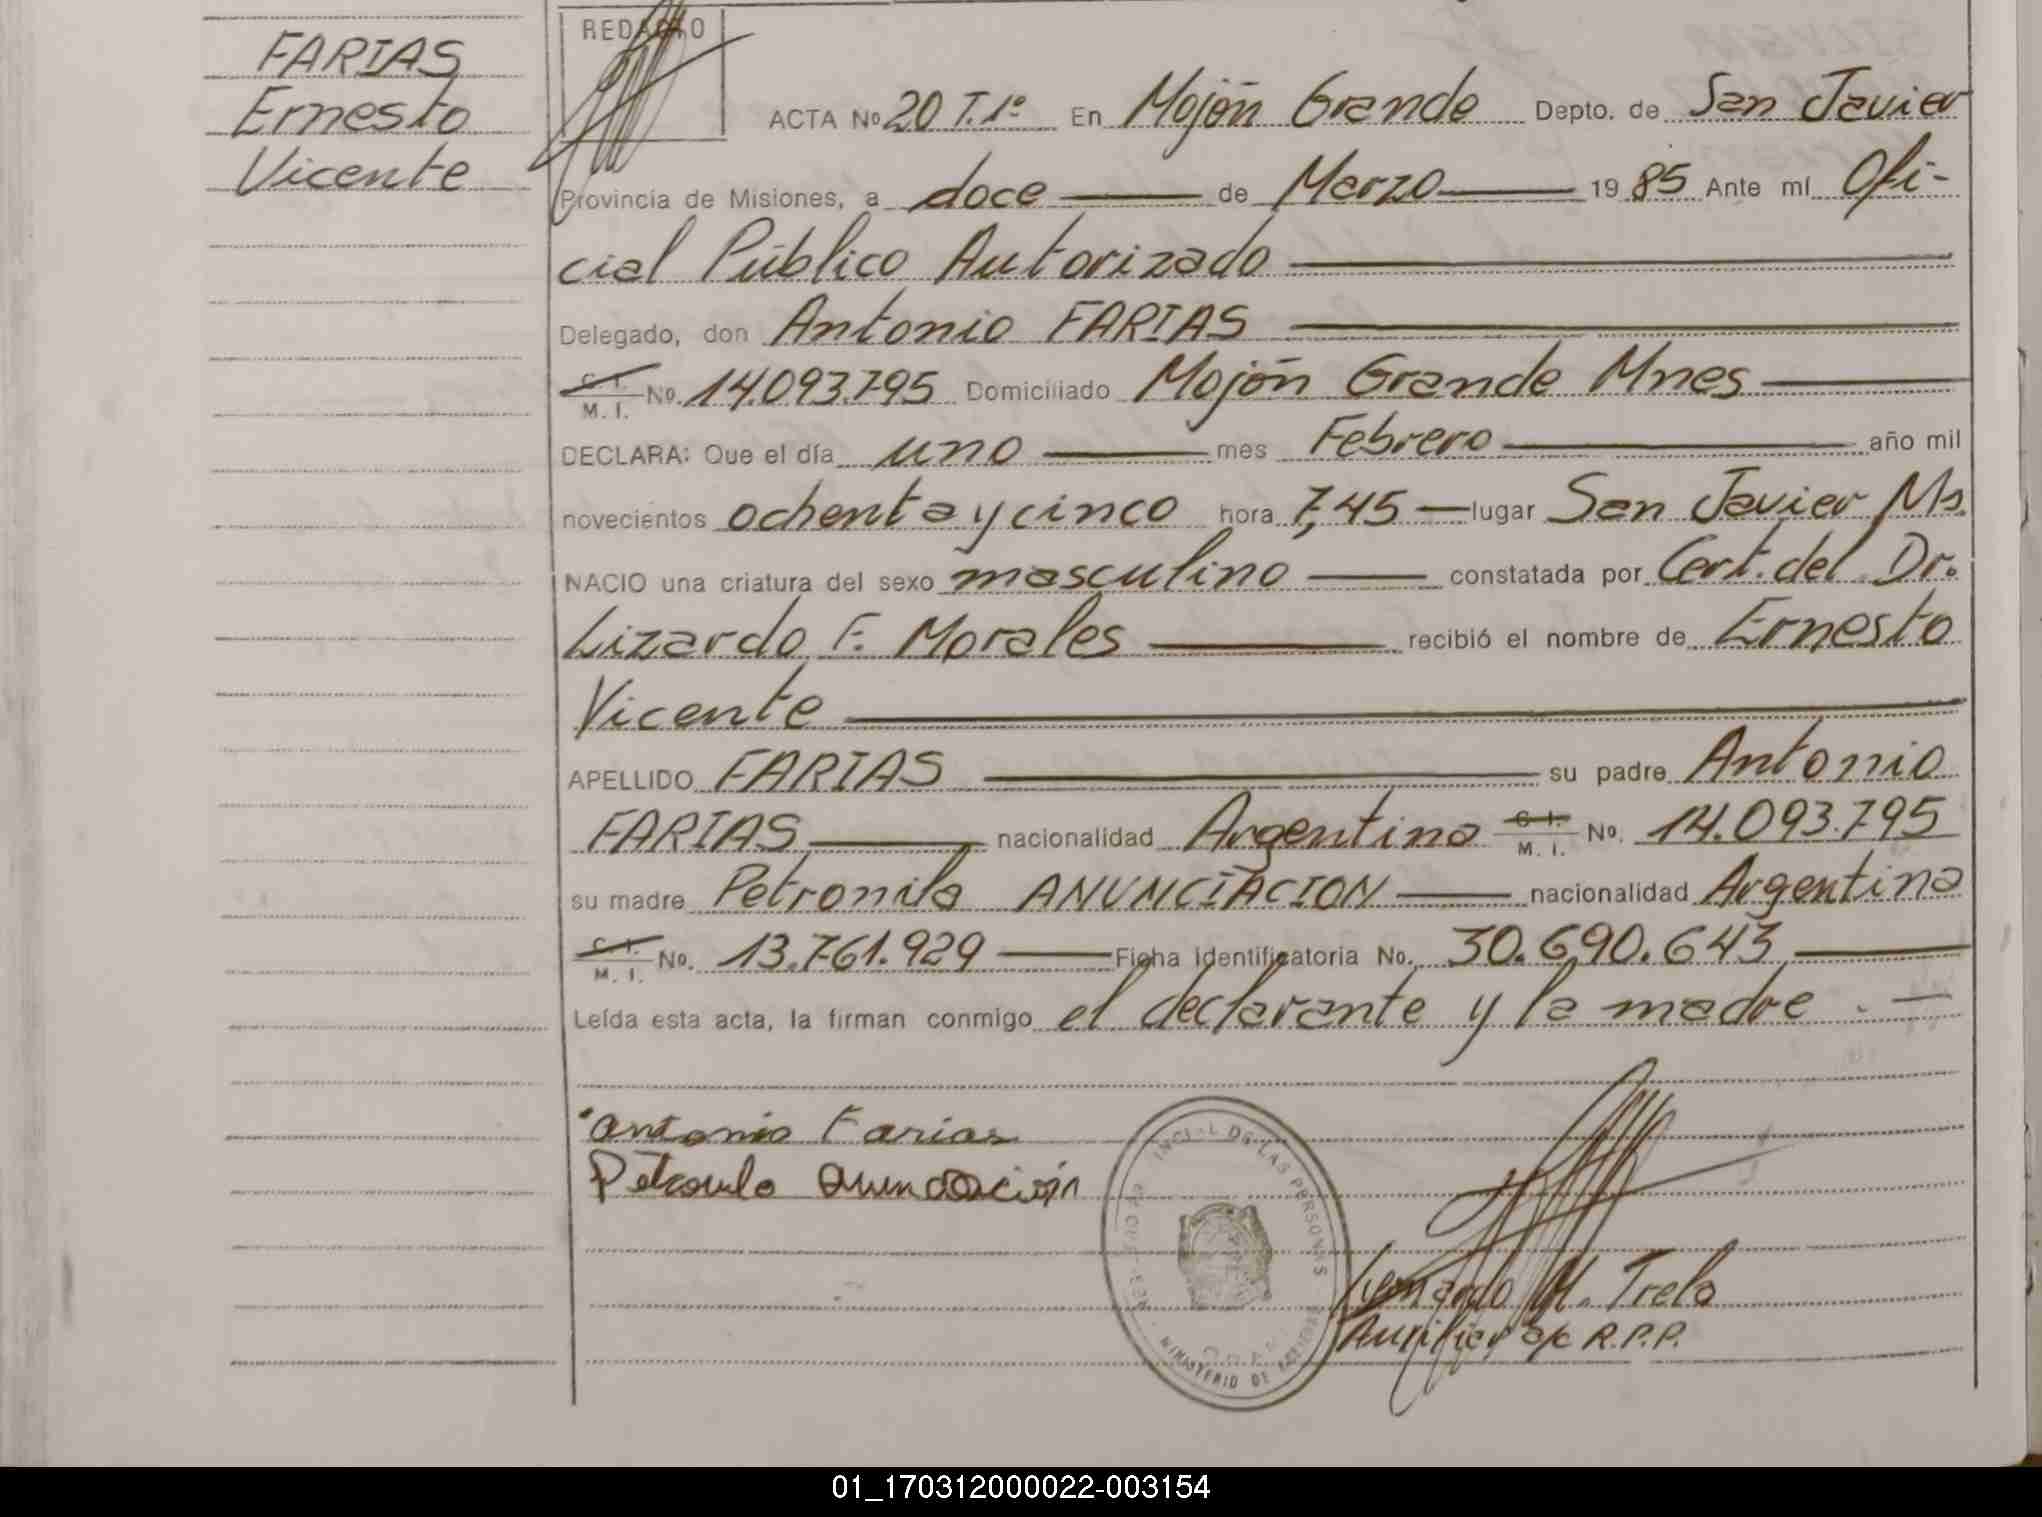 FARIAS
Ernesto
Vicente
REDACTO
ACTA Nº 20 T.1º En Mojón Grande Depto. de San Javier
Provincia de Misiones, a doce de Marzo 1985 Ante mí Ofi-
cial Público Autorizado
Delegado, don Antonio FARIAS
C. I. M. I. Nº. 14.093.795 Domiciliado Mojón Grande Mnes
DECLARA: Que el día uno mes Febrero año mil
novecientos ochenta y cinco hora 7,45 lugar San Javier Ms.
NACIO una criatura del sexo masculino constatada por Cert. del Dr.
Lizardo F. Morales recibió el nombre de Ernesto
Vicente
APELLIDO FARIAS su padre Antonio
FARIAS nacionalidad Argentina C. I. M. I. Nº. 14.093.795
su madre Petronila ANUNCIACION nacionalidad Argentina
C. I. M. I. Nº. 13.761.929 Ficha identificatoria No. 30.690.643
Leída esta acta, la firman conmigo el declarante y la madre.
Antonio Farias
DE LAS PERSONAS
MINISTERIO DE
M. Trela
Auxiliar a/c R.P.P.
01_170312000022-003154